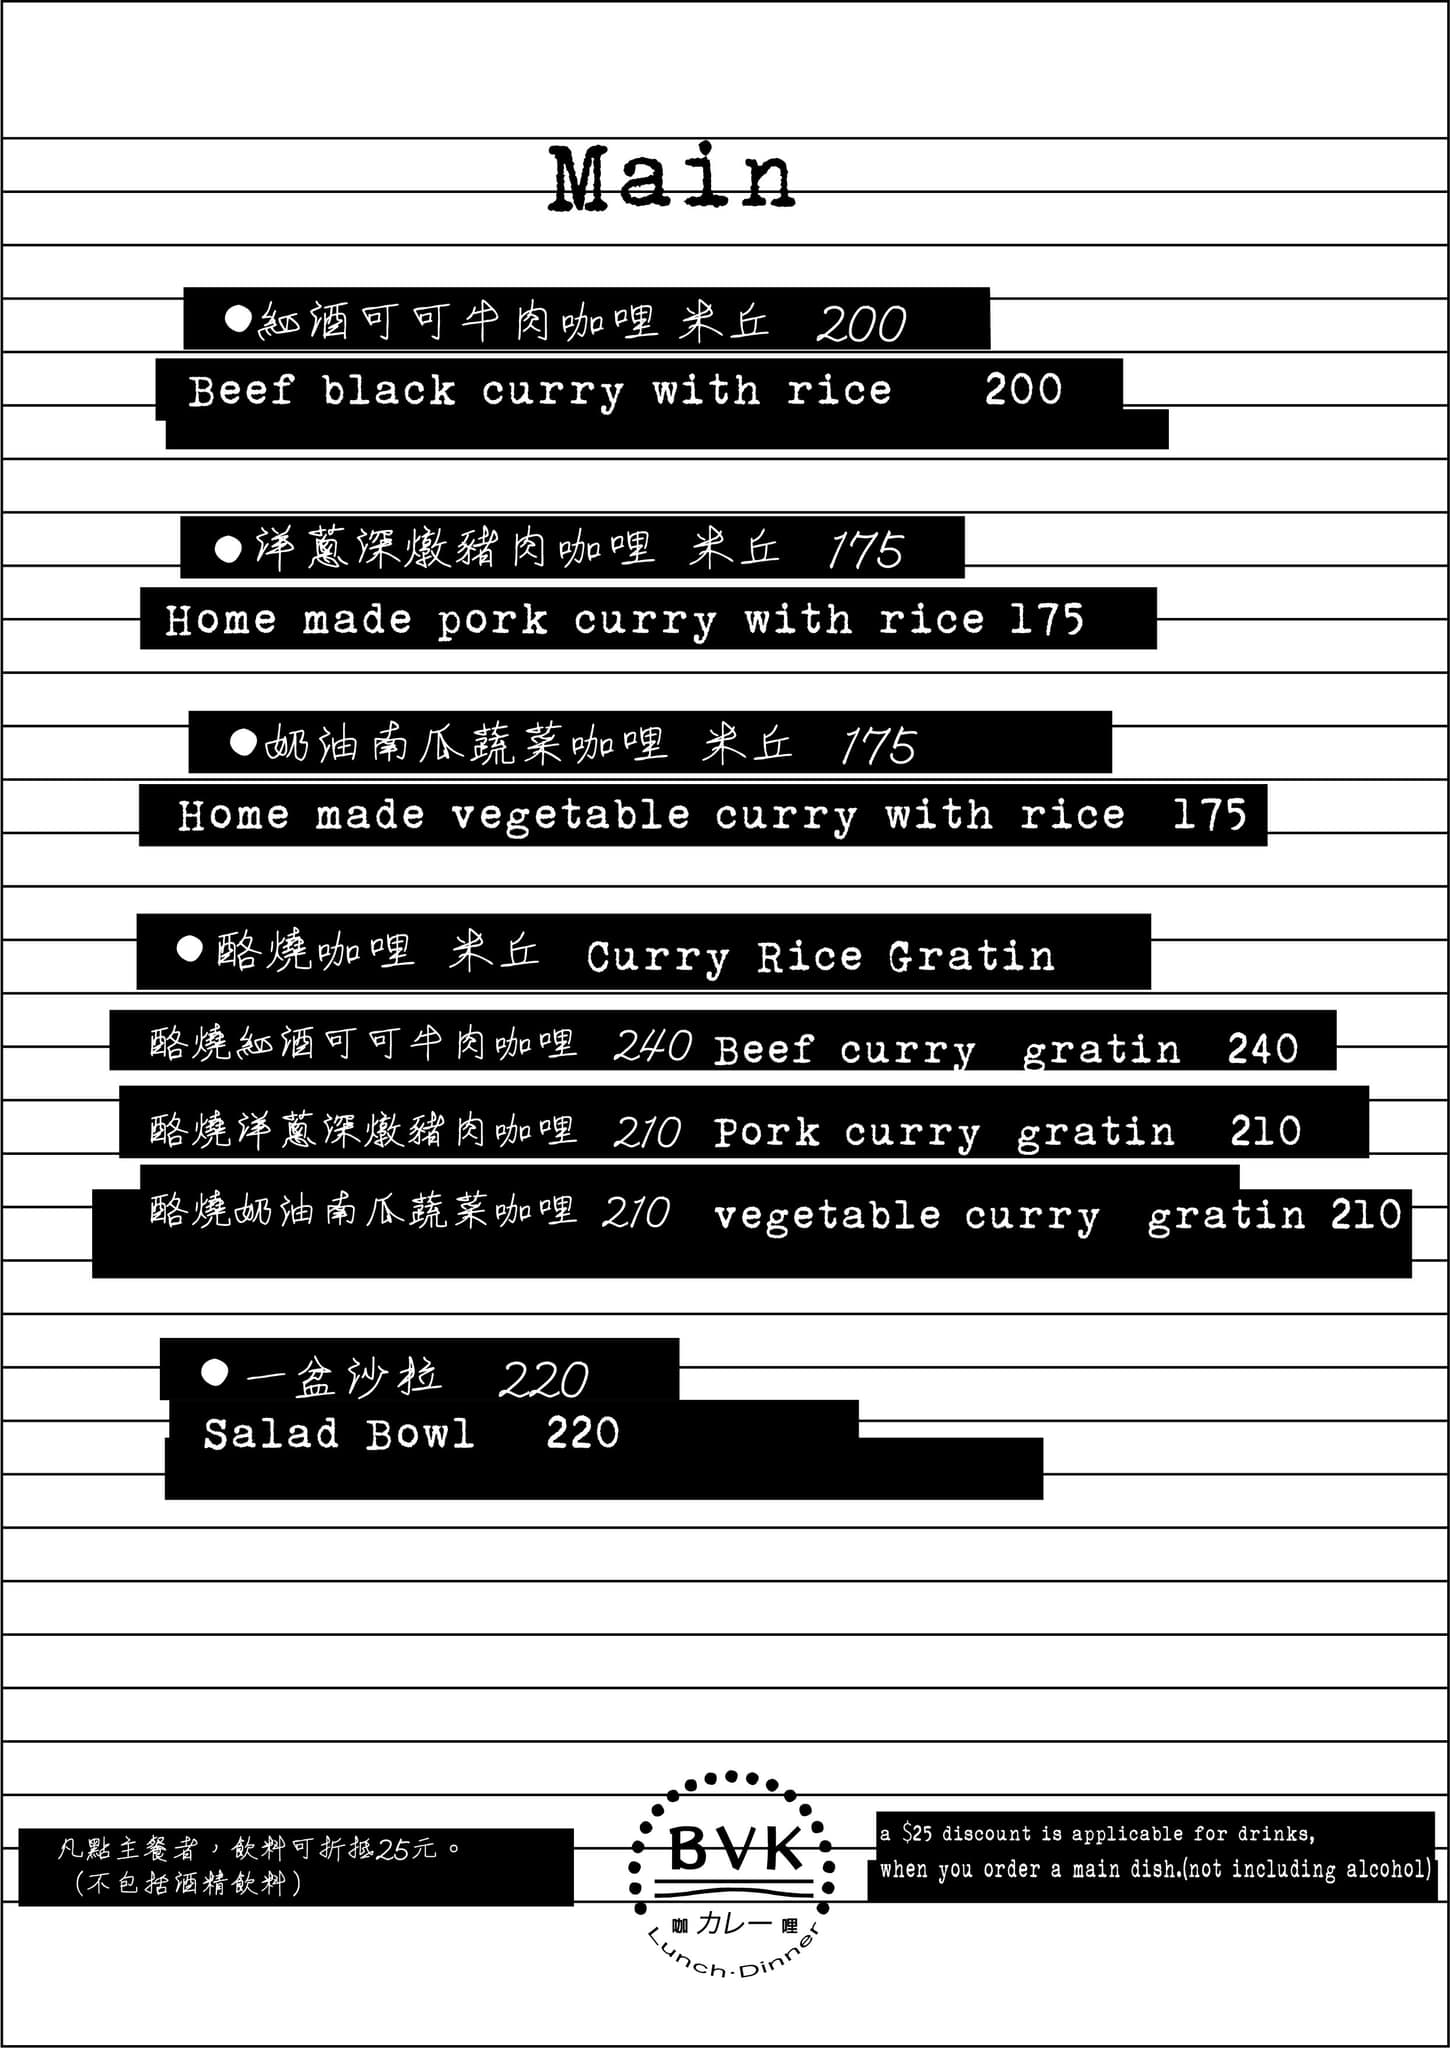 Main
●紅酒可可牛肉咖哩 米丘 200
Beef black curry with rice 200
●洋蔥深燉豬肉咖哩 米丘 175
Home made pork curry with rice 175
●奶油南瓜蔬菜咖哩 米丘 175
Home made vegetable curry with rice 175
●酪燒咖哩 米丘 Curry Rice Gratin
酪燒紅酒可可牛肉咖哩 240 Beef curry gratin 240
酪燒洋蔥深燉豬肉咖哩 210 Pork curry gratin 210
酪燒奶油南瓜蔬菜咖哩 210 vegetable curry gratin 210
●一盆沙拉 220
Salad Bowl 220
凡點主餐者，飲料可折抵25元。
(不包括酒精飲料)
BVK
咖 カレー 哩
Lunch·Dinner
a $25 discount is applicable for drinks,
when you order a main dish.(not including alcohol)